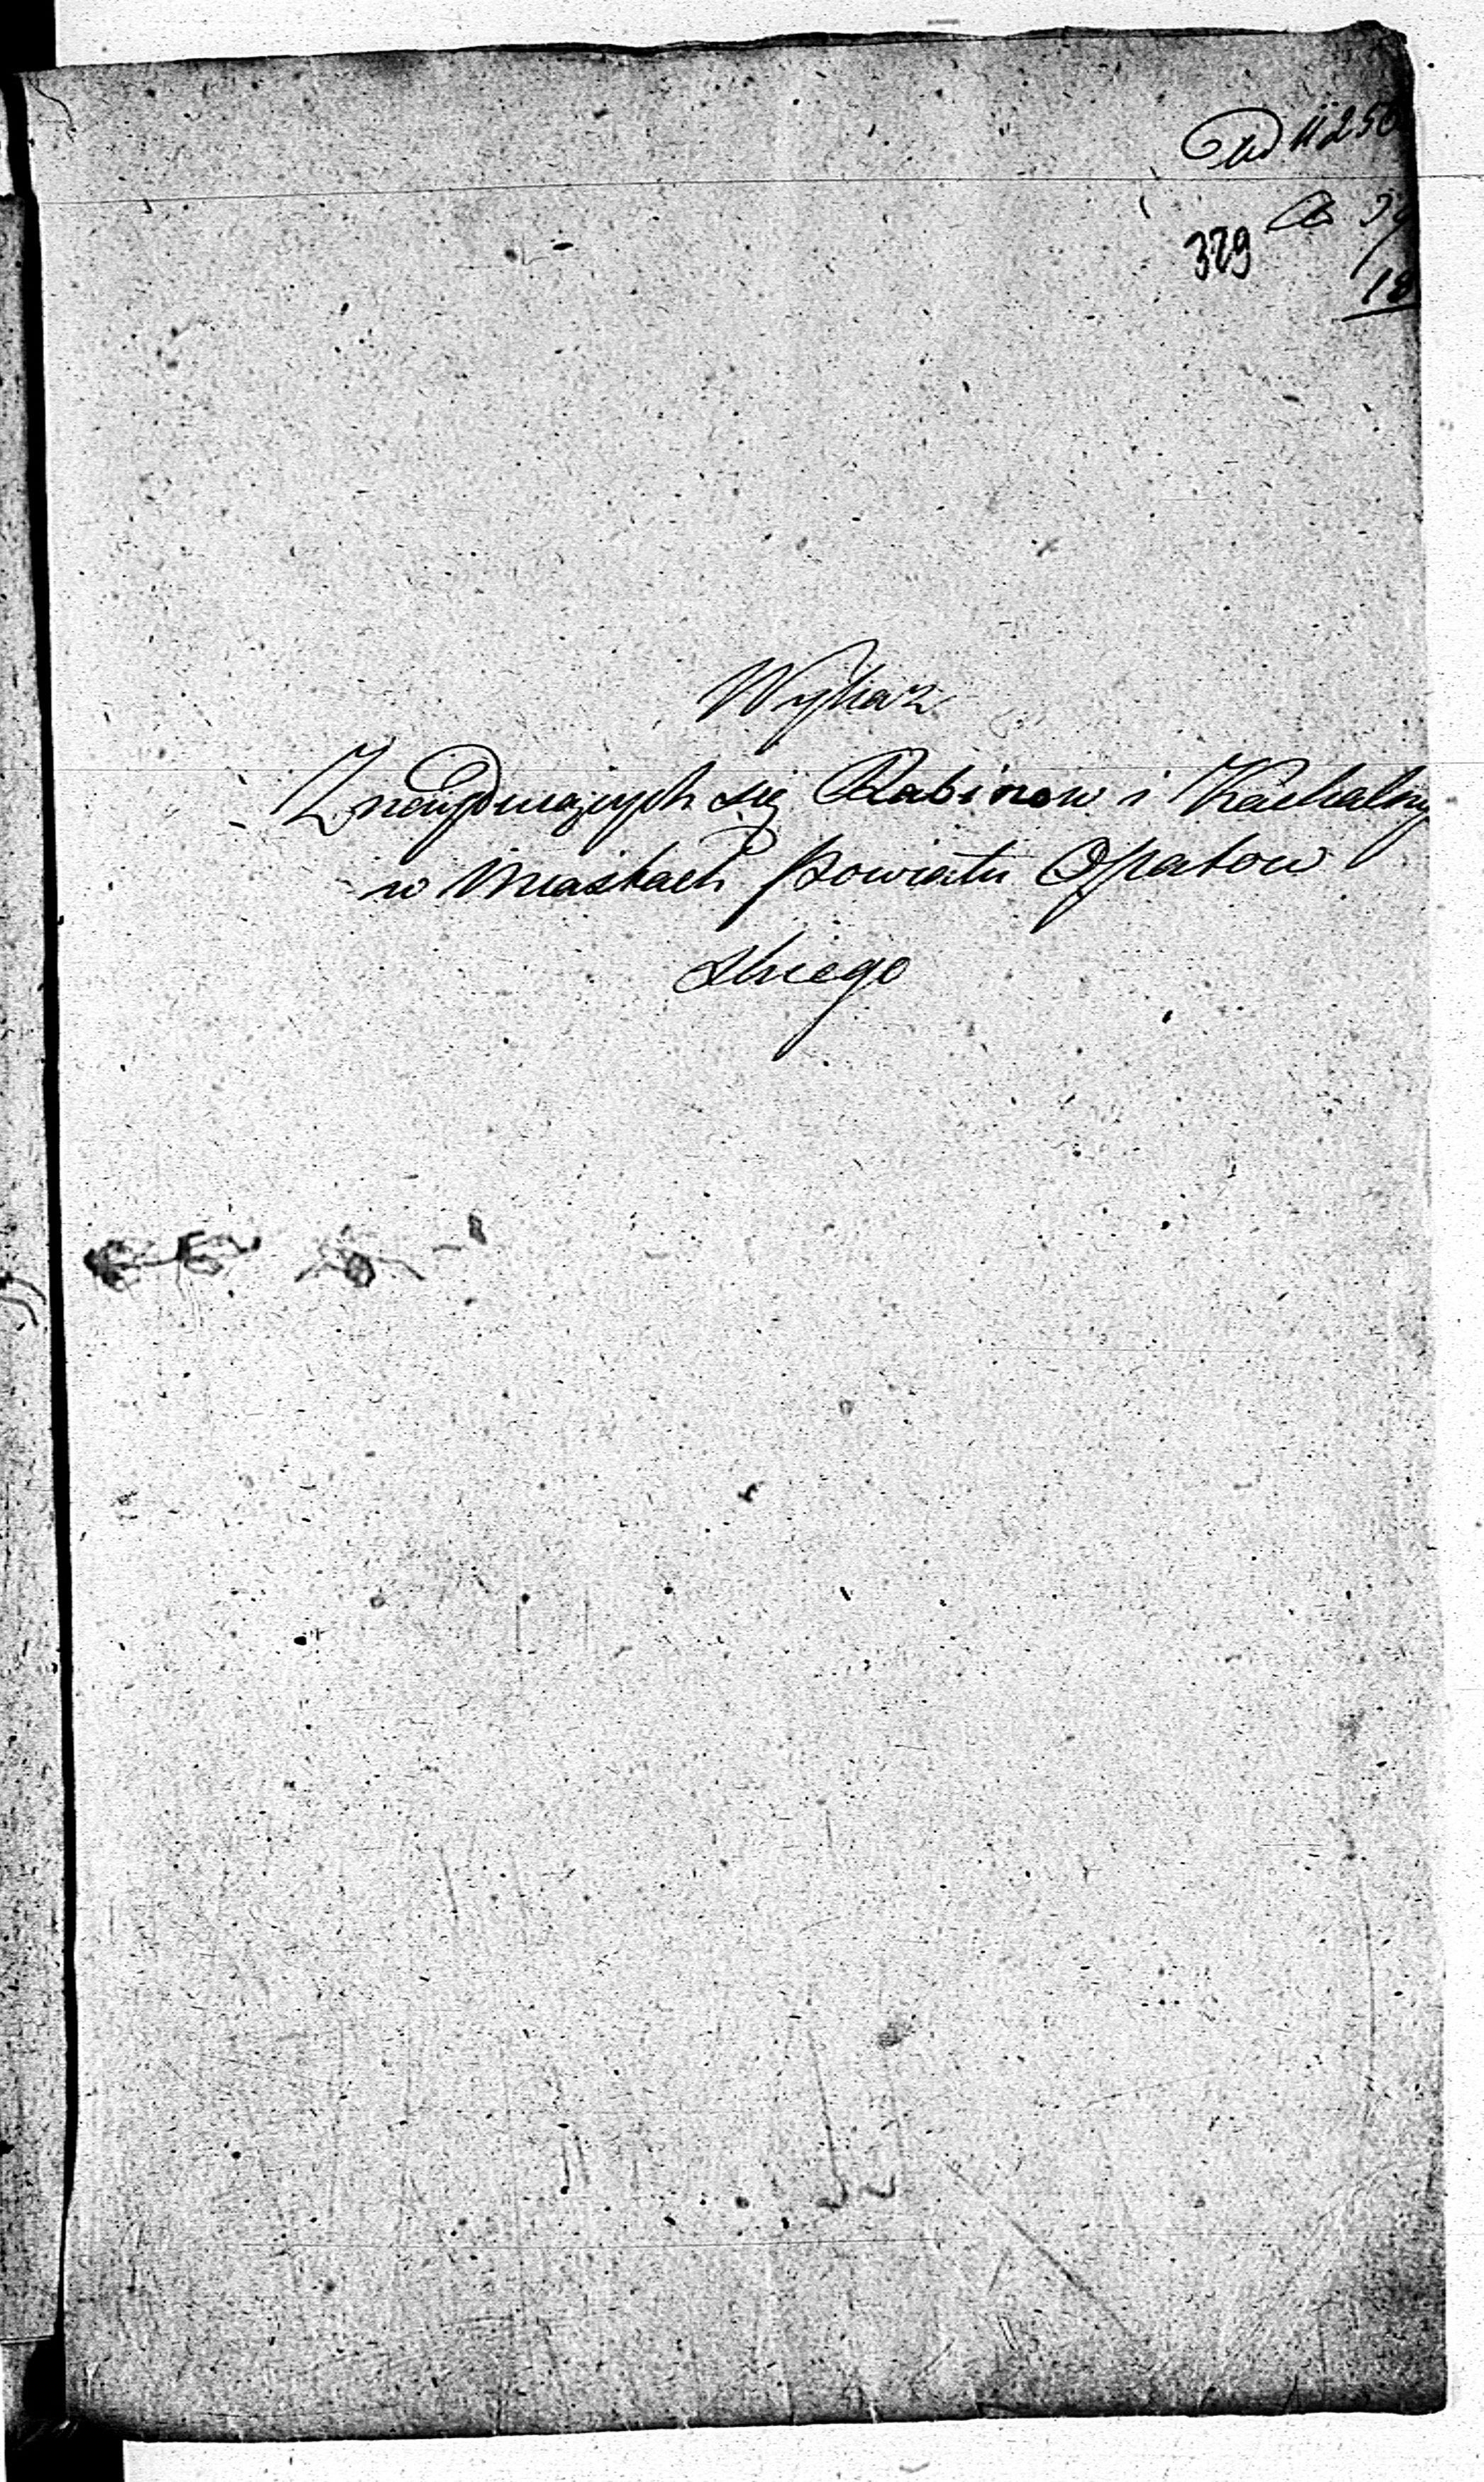 Ad 11250
379
18
Wykaz
Znayduiących się Rabinow i Kachalny
w Miastach Powiatu Opatow
skiego